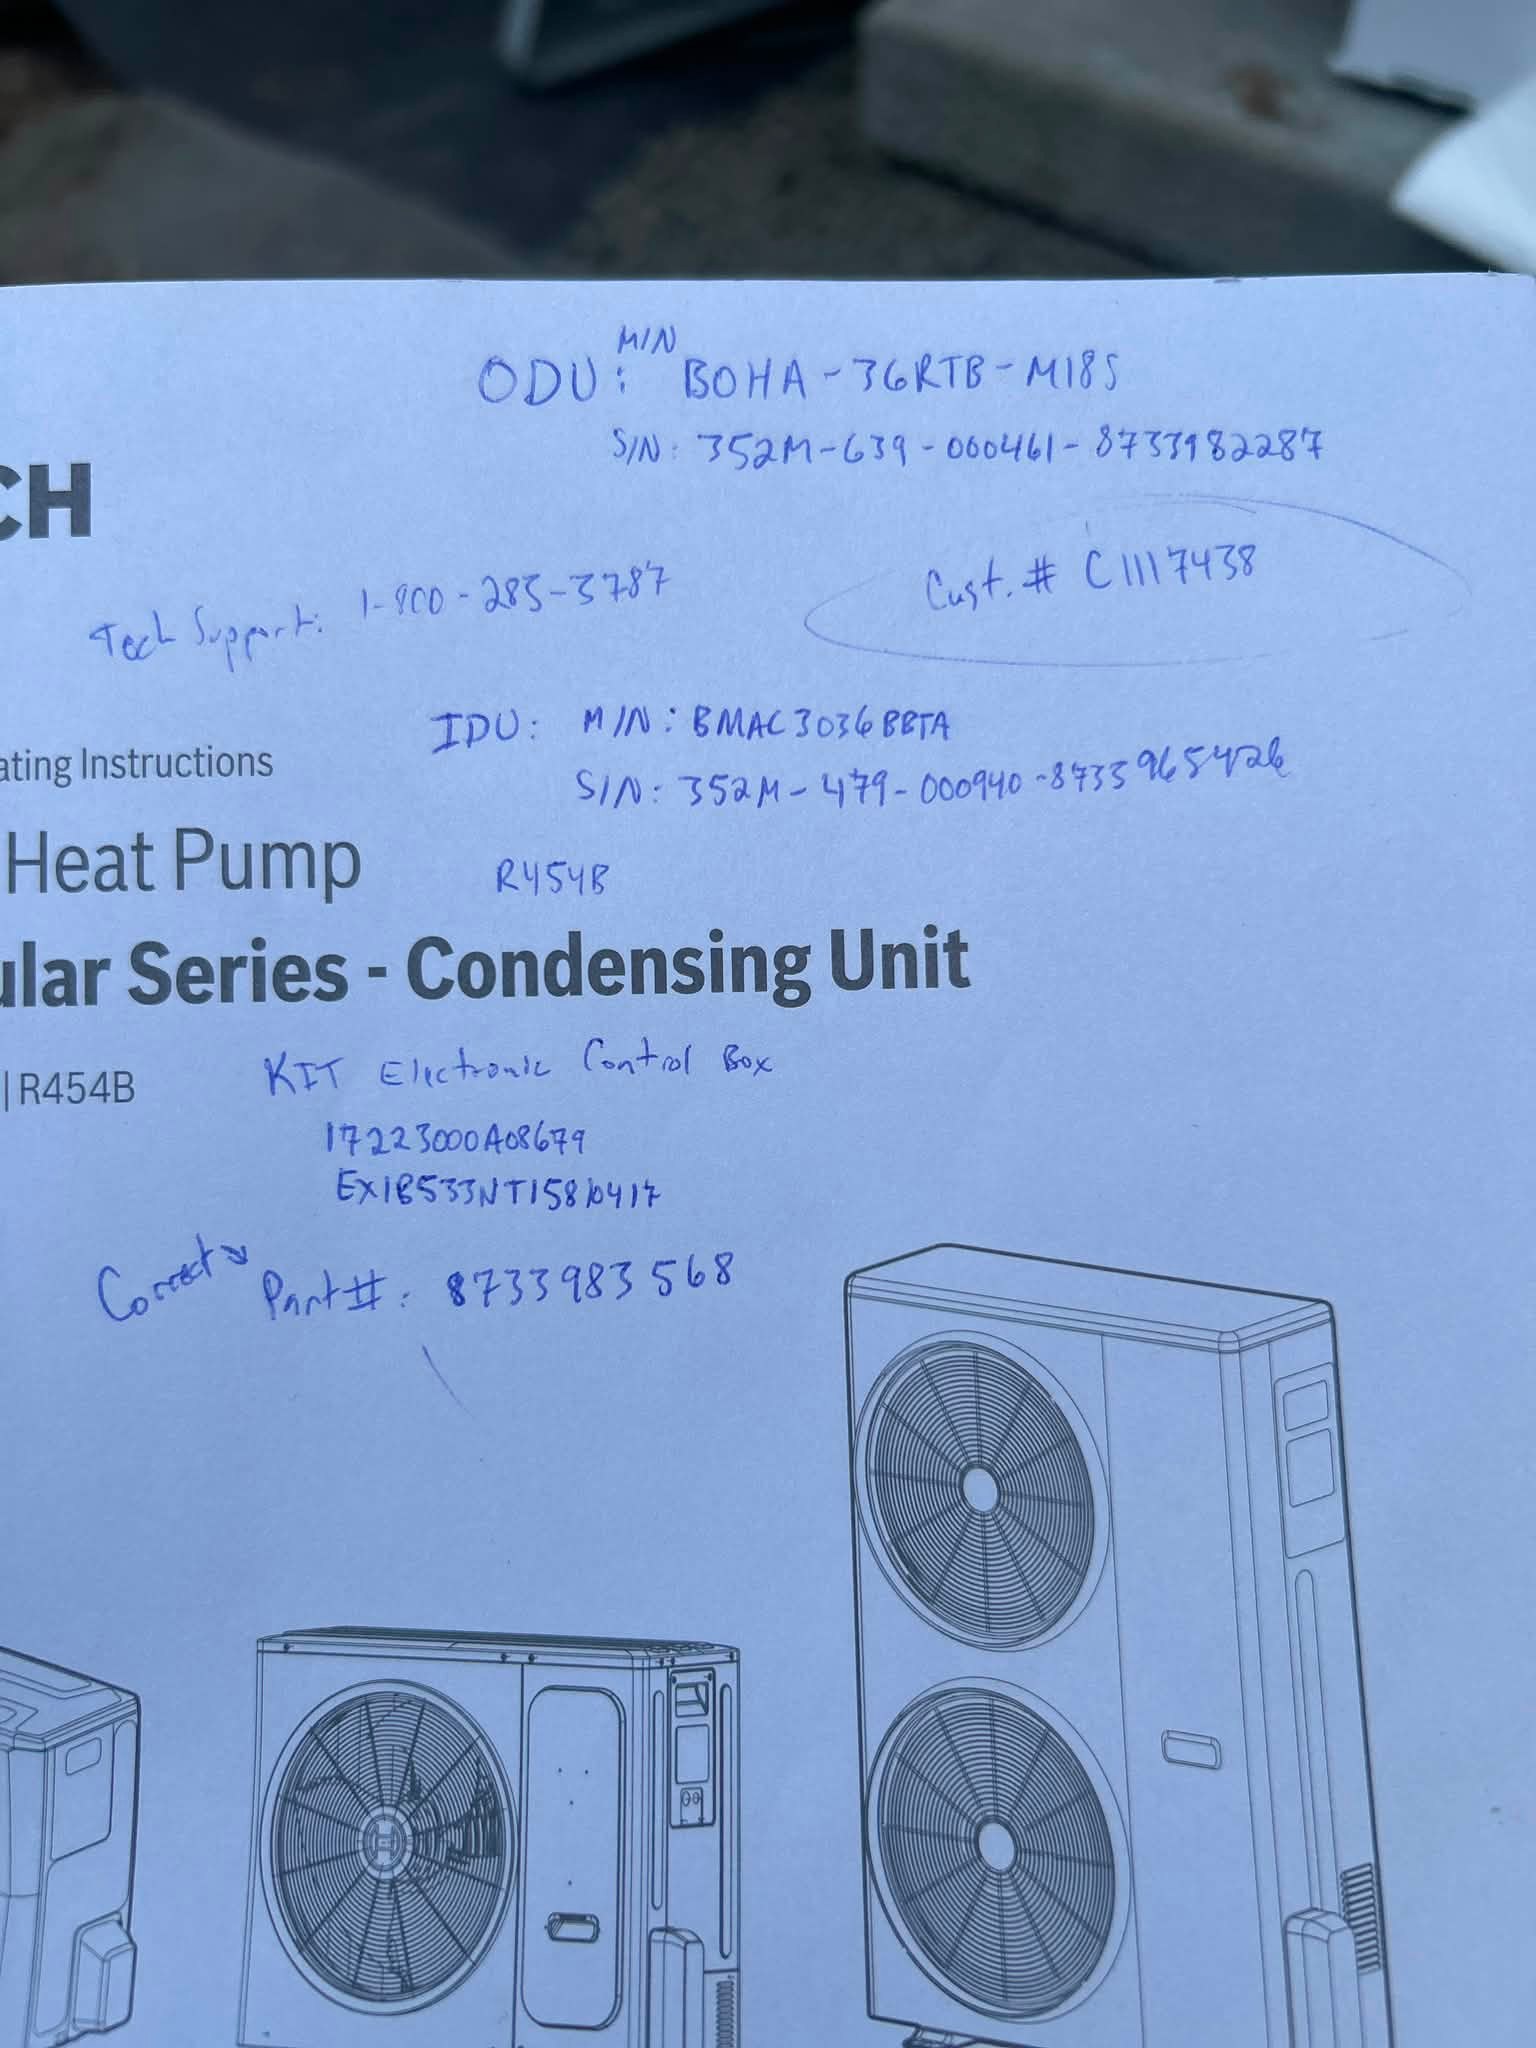 M/N
ODU: BOHA-36RTB-M18S
S/N: 352M-639-000461-8733982287
CH
Cust.# C1117438
Tech Support: 1-800-283-3787
IDU: M/N: BMAC3036BBTA
ating Instructions
S/N: 352M-479-000940-8733965426
Heat Pump
R454B
ular Series - Condensing Unit
KIT Electronic Control Box
| R454B
17223000A08679
Correct
Part#: 8733983568